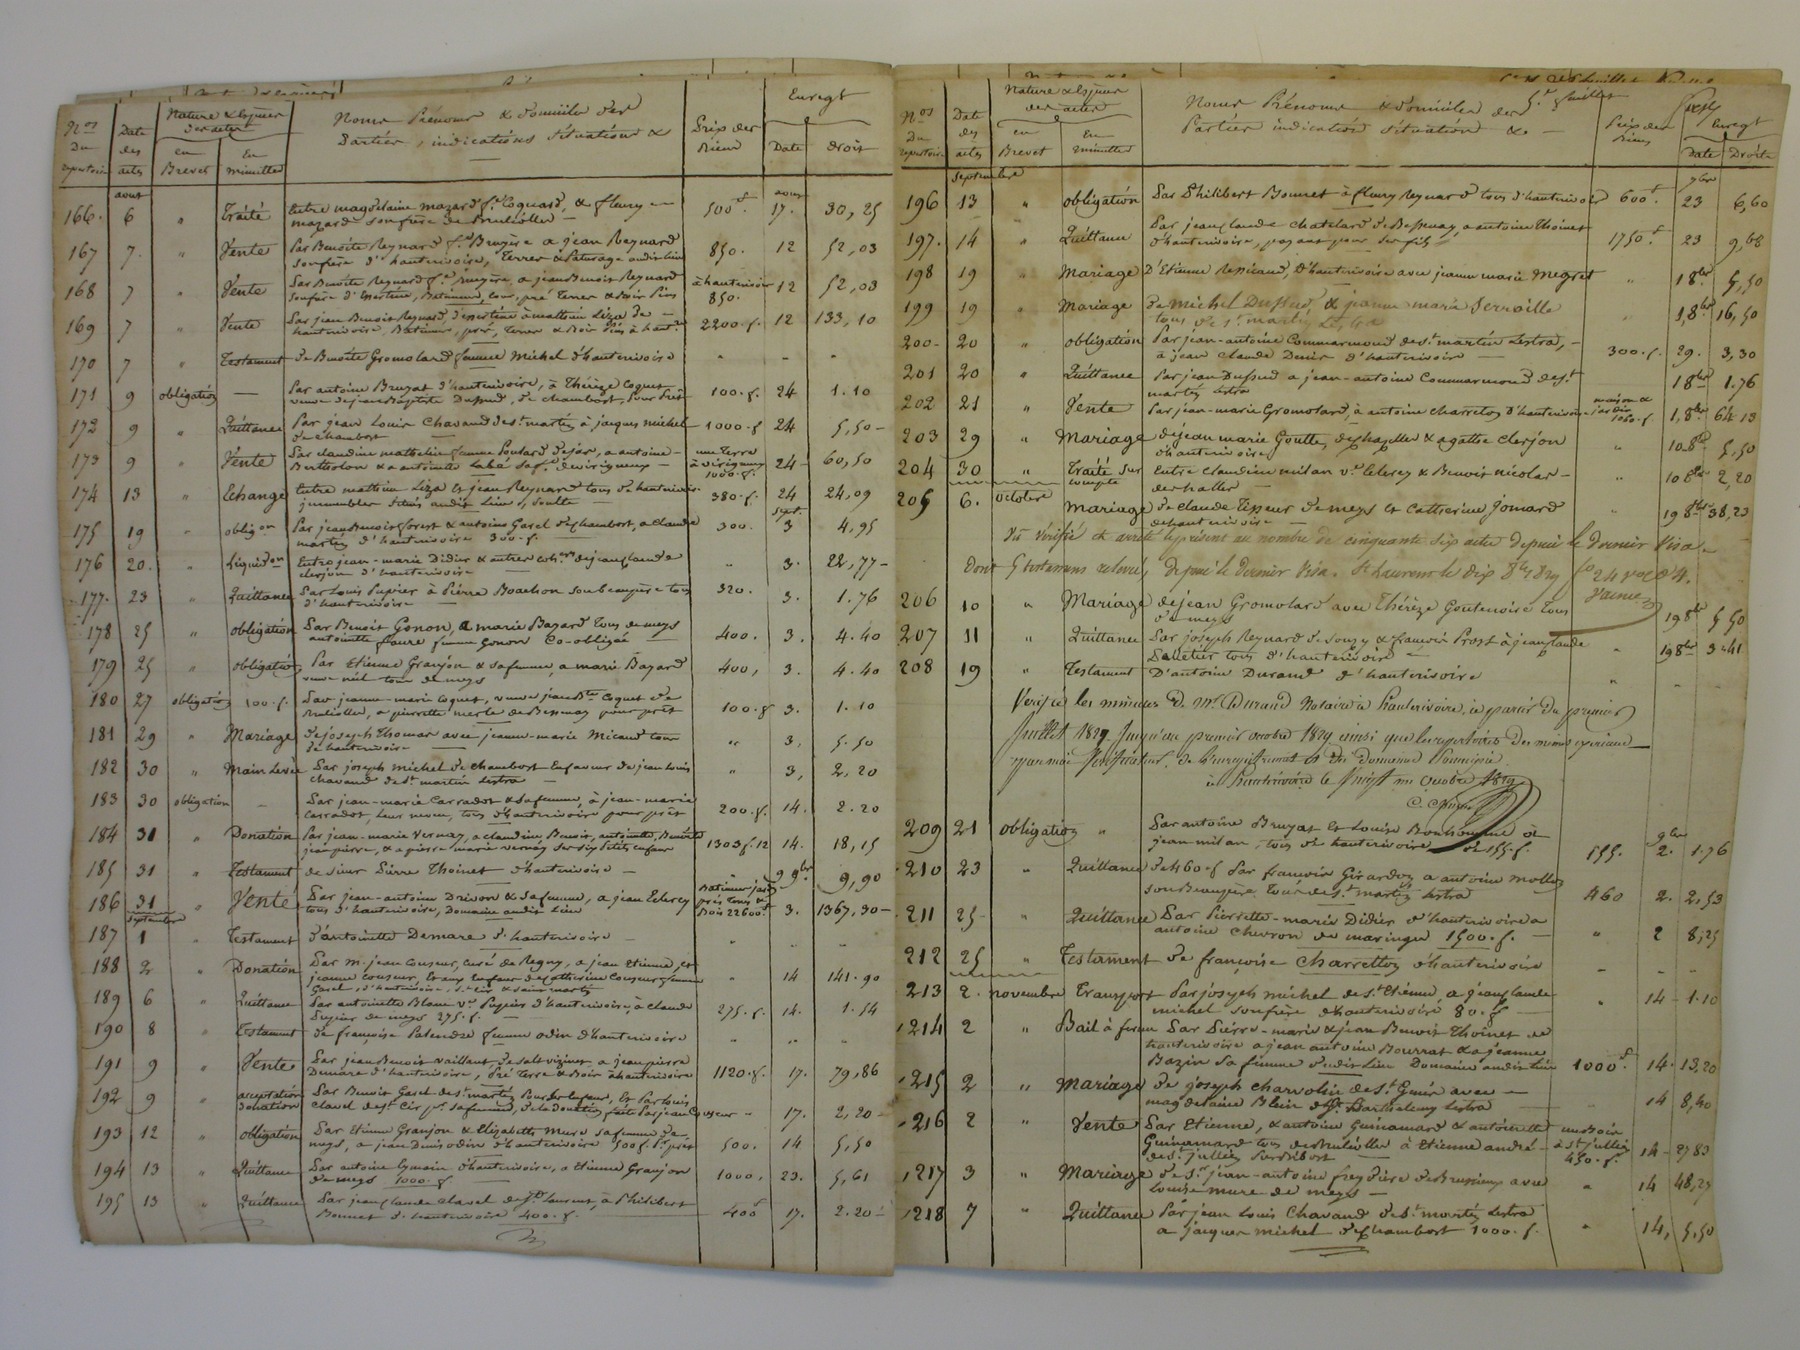 Nos Du repertoire
Date des actes
Nature & Espèces des actes
en Brevet
En minuttes
Noms Prénoms & domiciles des
Parties, indications situations &
Prix des Biens
Enregt
Date
droit
aout
aout
166. 6 " Traité Entre magdelaine mazard fe Coquard, & fleury
mazard son frère de Brulliolles — 500f. 17. 30,25
167 7. " Vente Par Benoite Reynard fe Bruyère a jean Reynard
son frère d'hauterivoire, Terres & Paturage audit lieu 850. 12 52,03
168 7 " Vente Par Benoite Reynard fe
son frère d'Essertine, Batiment, cour, pré Terres & Bois Pins à hauterivoire 850. 12 52,03
169 7 " Vente Par jean Benoit Reynard d'essertine à mathieu Liza de
hauterivoire, Batiment, pré, Terres & Bois Pins à haut 2200.f. 12 133,10
170 7 Testament de Benoite Gromolard femme Michel d'hauterivoire - - -
171 9 obligation — Par antoine Bruyat d'hauterivoire, à Thérèze Coquet
veuve de jean Baptiste Dussud, de chambost, Pour Prêt 100.f. 24 1.10
172 9 " Quittance Par jean Louis Chavand de st martin, à jacques michel
de chambost — 1000.f 24 5,50 —
173 9 " Vente Par claudine mathelin femme Poulard dejas, a antoine
Bertholon & a antoinette Labé sa fe de virigneux — une Terre à virigneux 1000.f. 24 60,50
174 13 " Echange Entre mathieu Liza Et jean Reynard tous de hauterivoire
immeubles situés audit Lieu, soulte — 380.f. 24 24,09
sept.
175 19 " obligon Par jean Benoit forest & antoine Garel de Chambost, a Claude
martin d'hauterivoire 300.f — 300. 3 4,95
176 20. " Liquidon Entre jean-marie Didier & autres cohers de jean claude
clerjon d'hauterivoire — " 3. 22,77 —
177. 23 " Quittance Par Louis Pupier à Pierre Boachon son beaupère tous
d'hauterivoire — 320. 3. 1.76
178 25 " obligation Par Benoit Gonon, A marie Bazard tous de meys
antoinette faure femme Gonon Co-obligée — 400. 3. 4.40
179 25 " obligation Par Etienne Granjon & sa femme, a marie Bazard
veuve tous de meys 400, 3. 4.40
180 27 obligation 100.f. Par jeanne-marie coquet, veuve jean Bte Coquet de
Brulliolles, a pierrette merle de Bessenay pour prêt 100.f 3. 1.10
181 29 " Mariage de joseph Thomas avec jeanne-marie Micaud tous
de hauterivoire — " 3, 5.50
182 30 " Main Levée Par joseph michel de chambost En faveur de jean Louis
chavand de St martin Lestra — " 3, 2,20
183 30 obligation — Par jean-marie Carradot & sa femme, à jean-marie
Carradot, leur neveu, tous d'hauterivoire pour prêt 200.f. 14. 2.20
184 31 " Donation Par jean-marie Vernay, a claudine Benoit, antoinette, Benoite
jean pierre, & a pierre marie vernay ses six Petits enfans 1303f.12 14. 18,15
185 31 " Testament de sieur Pierre Thoinet d'hauterivoire — " 9 9bre 9,90
186 31 " Vente Par jean-antoine Drivon & sa femme, a jean Eclercy
tous d'hauterivoire, Domaine audit Lieu Batimens jardin prés Terres & Bois 22600f 3. 1367,30 —
septembre
187 1 " Testament d'antoinette Demare d'hauterivoire — " " "
188 2 " Donation Par M. jean Couseur, curé de Regny, a jean Etienne, et
jeanne couseur, Et aux Enfans de catherine Couseur femme
Garel, d'hauterivoire, St Cir & saint martin " 14 141.90
189 6 " Quittance Par antoinette Blanc ve Pupier d'hauterivoire, à claude
Pupier de meys 275.f. — 275.f. 14. 1.54
190 8 " Testament de françoise Palandre femme odin d'hauterivoire " " "
191 9 " Vente Par jean Benoit vaillant de salt vizinet a jean pierre
Demare d'hauterivoire, Pré Terre & Bois à hauterivoire 1120.f. 17. 79,86
192 9 " acceptation donation Par Benoit Garel de st martin Pour ses Enfans, Et Par Louis
Clavel de st Cir pr sa femme, de la donation faite Par jean Couseur " 17. 2,20 —
193 12 " obligation Par Etienne Granjon & Elizabeth Mure sa femme de
meys, a jean Denis odin d'hauterivoire 500f. Pr prêt 500. 14 5,50
194 13 " Quittance Par antoine Eymain d'hauterivoire, a Etienne Granjon
de meys 1000.f — 1000, 23. 5,61
195 13 " Quittance Par jean claude clavel de St Laurent, à Philibert
Bonnet d'hauterivoire 400.f. — 400f 17. 2.20 —
Nos Du repertoire
Date des actes
Nature & Espèces des actes
en Brevet
En minuttes
Noms Prénoms & domiciles des
Parties indications situation &c —
5e feuillet
Prix des Biens
Enregt
Date
Droits
septembre
7bre
196 13 " obligation Par Philibert Bonnet à fleury Reynard tous d'hauterivoire 600f. 23 6,60
197. 14 " Quittance Par jean claude chatelard de Bessenay, a antoine Thoinet
d'hauterivoire, payant pour son fils 1750f 23 9,68
198 19 " Mariage D'Etienne Ressicaud, d'hauterivoire avec jeanne marie Megret " 1 8bre 5,50
199 19 " Mariage de Michel Dussud, & jeanne marie Ferroille
tous de st martin Lestra " 1,8bre 16,50
200- 20 " obligation Par jean-antoine Commarmond de st martin Lestra,
à jean claude Denis d'hauterivoire — 300.f. 29. 3,30
201 20 " Quittance Par jean Dussud a jean-antoine Commarmond de st
martin Lestra 1 8bre 1.76
202 21 " Vente Par jean-marie Gromolard, à antoine Charreton d'hauterivoire maison & jardin 1050.f. 1,8bre 64 13
203 29 " Mariage de jean marie Goutte, de hazelles & agathe clerjon
d'hauterivoire " 10 8bre 5,50
204 30 " Traité sur compte Entre claudine milan ve Eclercy & Benoit nicolas
des halles — " 10 8bre 2,20
205 6. octobre Mariage de claude Tisseur de meys Et Catherine Jomard
d'hauterivoire — " 19 8bre 38,23
Vu vérifié et arrêté le présent au nombre de cinquante six actes depuis le dernier Visa.
Dont 5 testamens relevés, depuis le dernier Visa. St Laurent le dix 8bre 1829 fo 24 vo c 4.
206 10 " Mariage de jean Gromolard avec Thérèze Goutenoire Tous
de meys 19 8bre 5 50
207 11 " Quittance Par joseph Reynard de souzy & françois Prost à jean claude
Pelletier tous d'hauterivoire — " 19 8bre 3-41
208 19 " Testament D'antoine Durand d'hauterivoire " - "
Vérifié les minutes de Mr Durand Notaire à hauterivoire, à partir du premier
Juillet 1829 Jusqu'au premier octobre 1829 ainsi que les repertoires Des mêmes
par moi Vérificateur de l'enregistrement et des domaines soussigné.
à hauterivoire le vingt un octobre 1829
209 21 obligation " Par antoine Bruyas Et Louise Bonhomme à
jean milan, tous de hauterivoire de 155.f. 155. 9bre 2. 1.76
210 23 " Quittance de 460.f Par françois Girardon a antoine mollon
son Beaupère Tous de st martin Lestra 460 2. 2,53
211 25- " Quittance Par Pierrette-marie Didier d'hauterivoire a
antoine chevron de maringes 1500.f. — " 2 8,25
212 25 " Testament de françoise Charretton d'hauterivoire - - "
213 2. novembre Transport Par joseph michel de st Etienne, a jean claude
michel son frère d'hauterivoire 80.f — " 14 - 1.10
214 2 " Bail à ferme Par Pierre-marie & jean Benoit Thoinet de
hauterivoire a jean antoine Bourrat & a jeanne
Bazin sa femme dudit Lieu Domaine audit Lieu 1000f 14. 13,20
215 2 " Mariage de joseph Charvolin de st Genis avec —
magdelaine Blein de St Barthelemy Lestra — 14 8,40
216 2 " Vente Par Etienne, & antoine Guinamard & antoinette
Guinamard tous de Brulliolles à Etienne andré
de st jullien sur Bibost — un Bois à st jullien 450.f. 14 - 27 83
217 3 " Mariage de Sr jean-antoine freydière de Brussieux avec
Louise mure de meys — " 14 48,29
218 7 " Quittance Par jean Louis Chavand de st martin Lestra
a jacques michel de Chambost 1000.f. " 14, 5,50